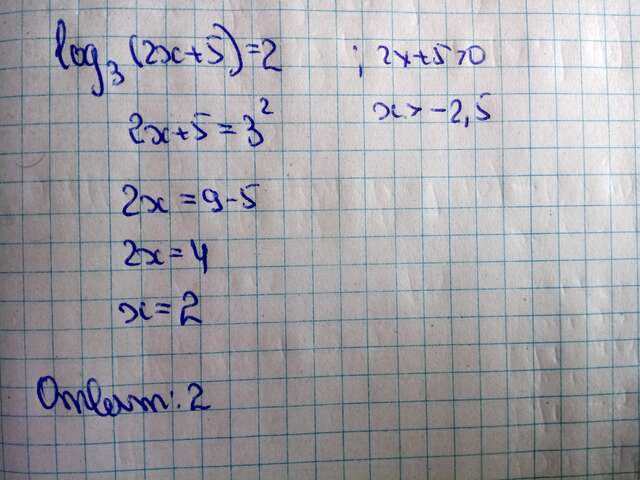 log₃ (2x+5) = 2 ; 2x+5>0
2x+5 = 3² x > -2,5
2x = 9-5
2x = 4
x = 2
Ответ: 2